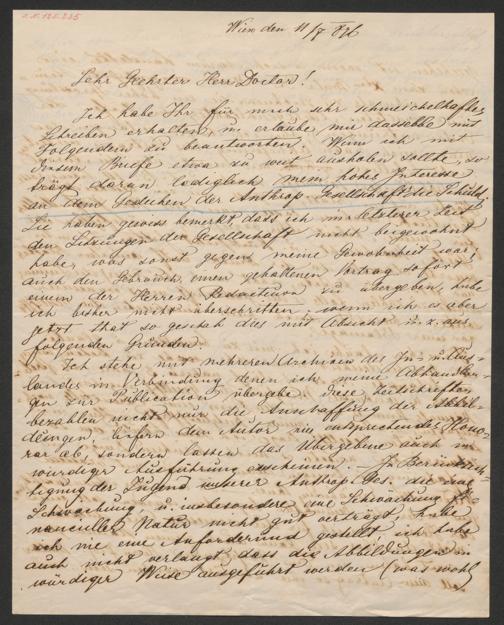 Wien den 11/7 876
Sehr Geehrter Herr Doctor!
Ich habe Ihr für mich sehr schmeichelhaftes
Schreiben erhalten, u. erlaube mir dasselbe mit
Folgendem zu beantworten. Wenn ich mit
diesem Briefe etwa zu weit ausholen sollte, so
trägt daran lediglich mein hohes Interesse
an dem Gedeihen der Anthrop. Gesellschaft die Schuld.
Sie haben gewiss bemerkt, dass ich in letzterer Zeit
den Sitzungen der Gesellschaft nicht beigewohnt
habe, was sonst gegen meine Gewohnheit war,
auch den Gebrauch, einen gehaltenen Vortrag sofort
einem der Herren Redacteure zu übergeben, habe
ich bisher nicht überschritten; wenn ich es aber
jetzt that so geschah dies mit Absicht u. z. aus
folgenden Gründen.
Ich stehe mit mehreren Archiven des In- u. Aus-
landes in Verbindung denen ich meine Abhandlun-
gen zur Publication übergebe, diese Zeitschriften
bezahlen nicht nur die Anschaffung der Abbil-
dungen, liefern dem Autor ein entsprechendes Hono-
rar ab, sondern lassen das Übergebene auch in
würdiger Ausführung erscheinen. — In Berücksich-
tigung der Jugend unserer Anthrop. Ges. die eine
Schwächung u. insbesondere eine Schwächung fi-
nancieller Natur nicht gut verträgt, habe
ich nie eine Anforderung gestellt, ich habe
auch nicht verlangt dass die Abbildungen in
würdiger Weise ausgeführt werden (was wohl